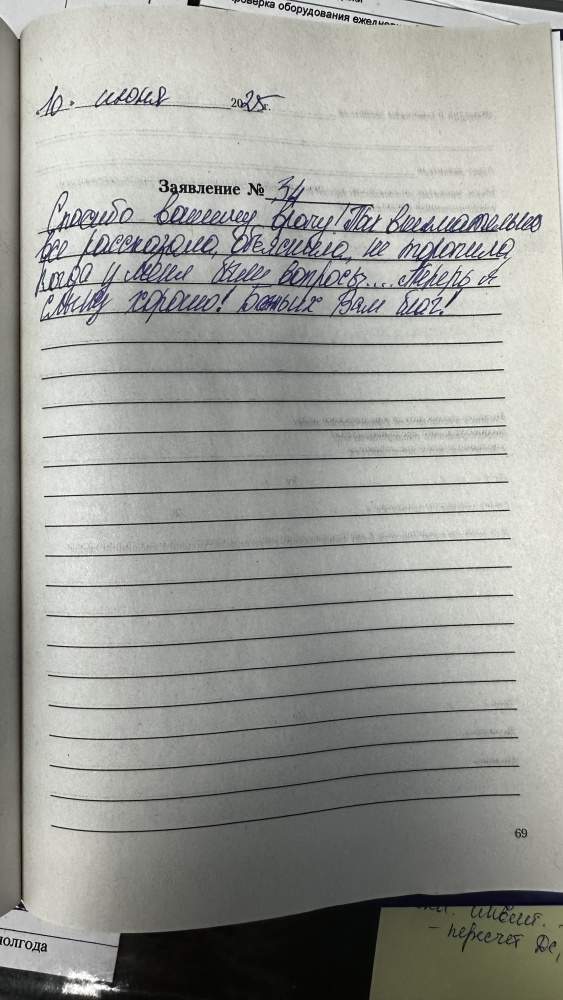 проверка оборудования ежедневн
10. июня 2025г.
Заявление № 34
Спасибо вашему врачу! Так внимательно
все рассказала, объяснила, не торопила,
когда у меня были вопросы... Теперь я
слышу хорошо! Всяких Вам благ!
69
полгода
- пересчет Дс,